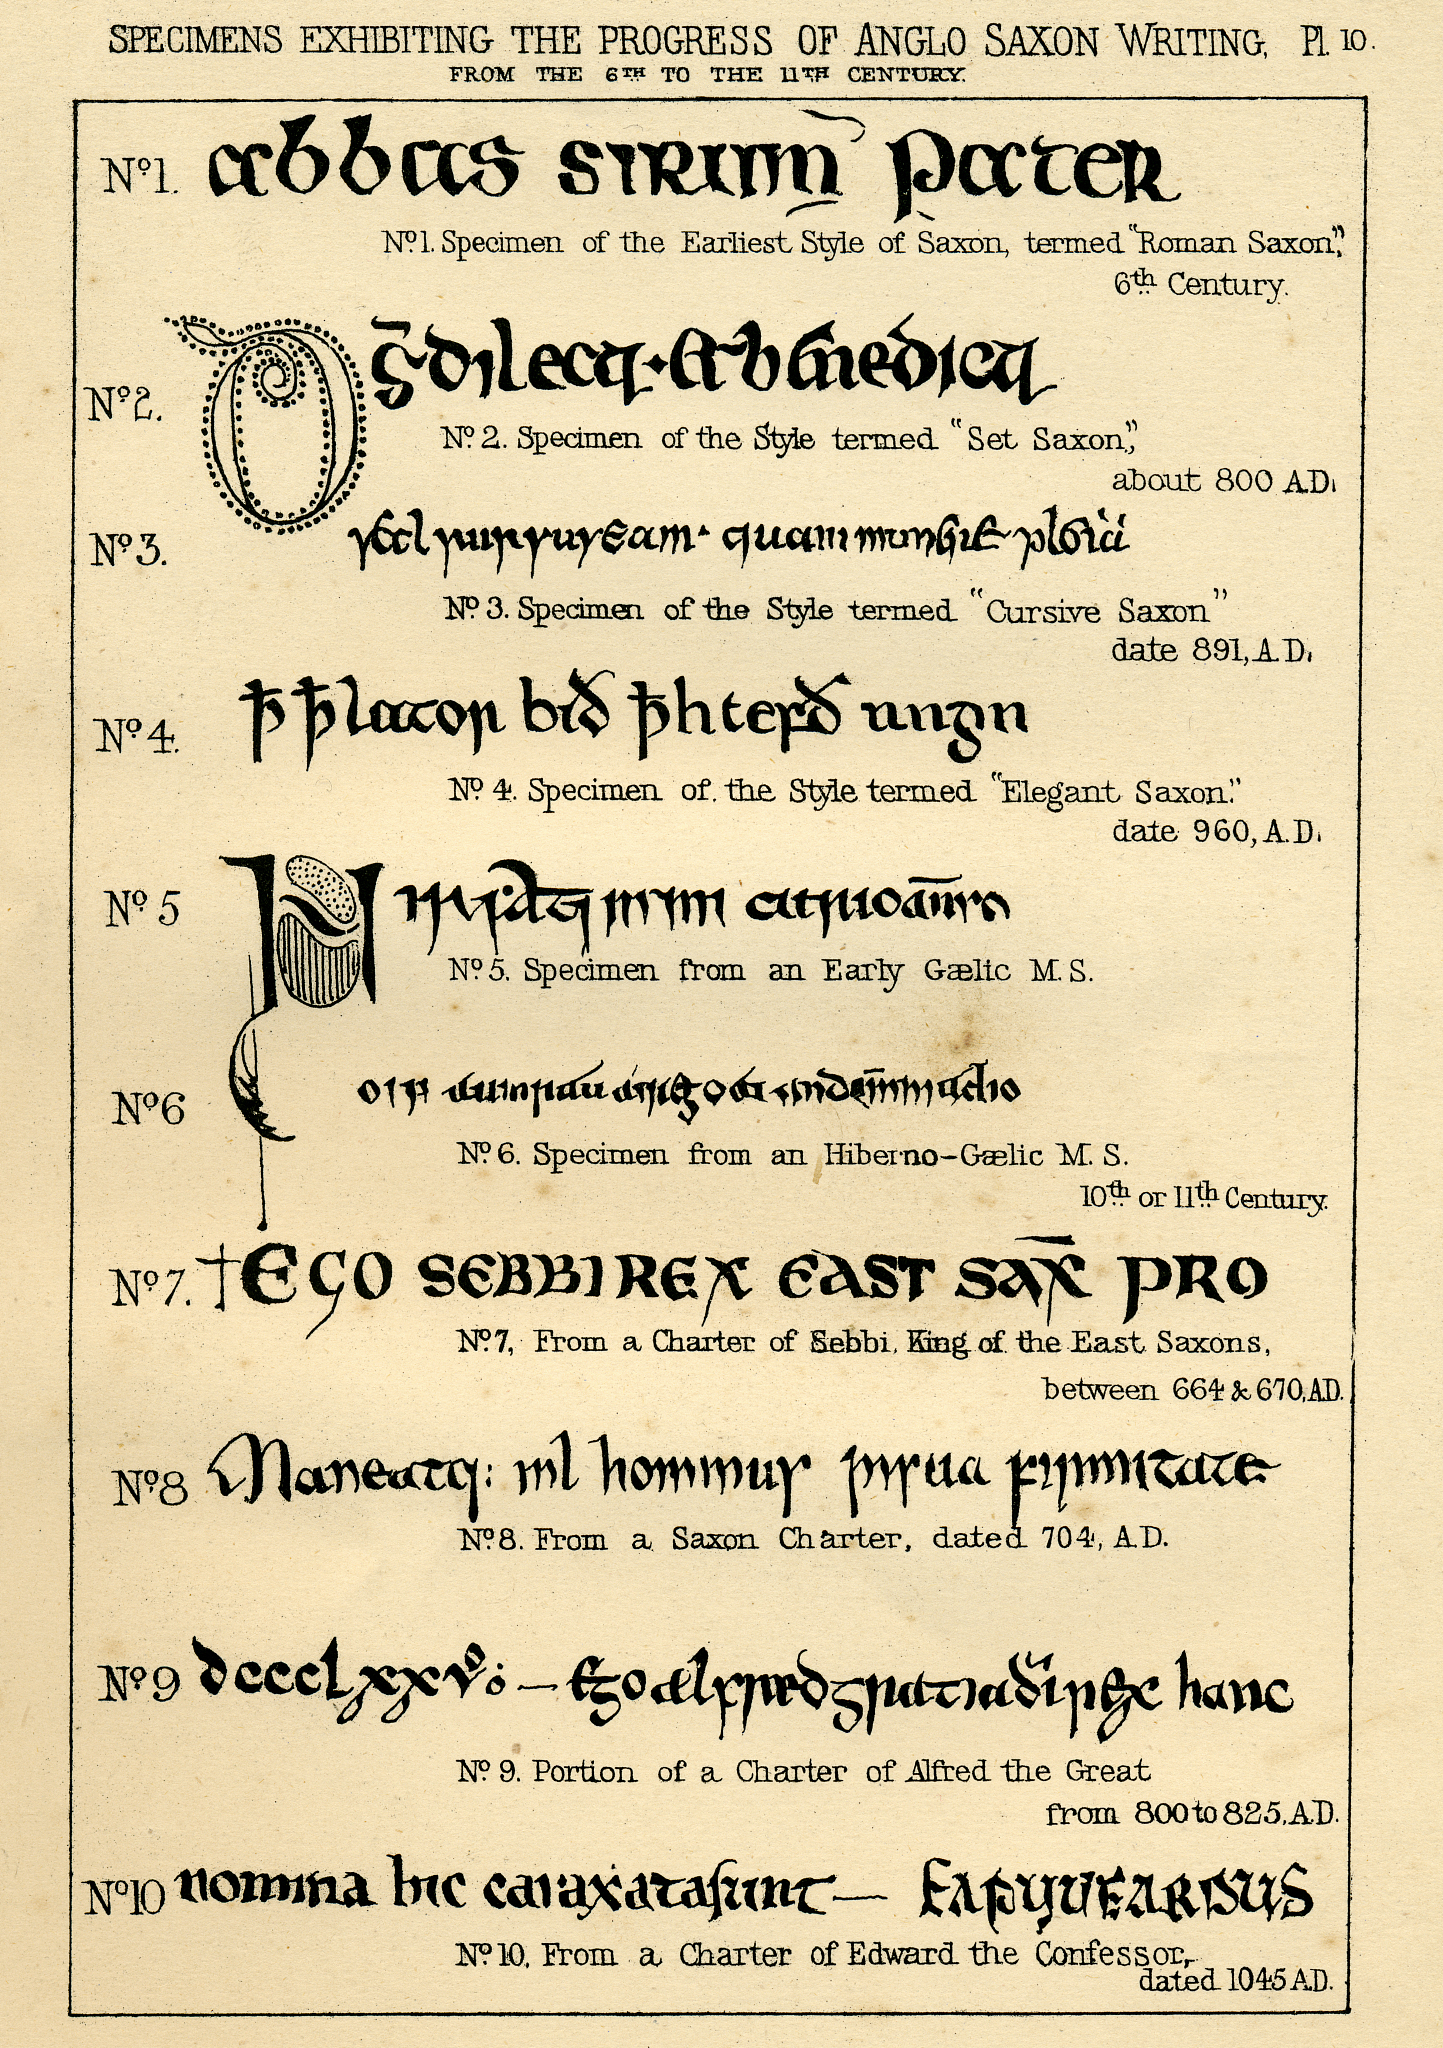 SPECIMENS EXHIBITING THE PROGRESS OF ANGLO SAXON WRITING, Pl. 10.
FROM THE 6TH TO THE 11TH CENTURY.
Nº1. abbas sirim pater
Nº1. Specimen of the Earliest Style of Saxon, termed "Roman Saxon",
6th Century.
Nº2.
Nº 2. Specimen of the Style termed "Set Saxon,"
about 800 A.D.
Nº3. quam
Nº 3. Specimen of the Style termed "Cursive Saxon"
date 891, A.D.
Nº4.
Nº 4. Specimen of the Style termed "Elegant Saxon."
date 960, A.D.
Nº 5
Nº 5. Specimen from an Early Gælic M.S.
Nº6
Nº 6. Specimen from an Hiberno-Gælic M.S.
10th or 11th Century.
Nº7. †EGO SEBBI REX EAST SAX̄ PRO
Nº7, From a Charter of Sebbi, King of the East Saxons,
between 664 & 670, A.D.
Nº8 Maneatq: hominus firmitate
Nº8. From a Saxon Charter, dated 704, A.D.
Nº9 dccclxxvº: — Ego ælfred gratia di hanc
Nº 9. Portion of a Charter of Alfred the Great
from 800 to 825, A.D.
Nº10 nomina hic caraxata sunt —
Nº 10, From a Charter of Edward the Confessor,
dated 1045 A.D.